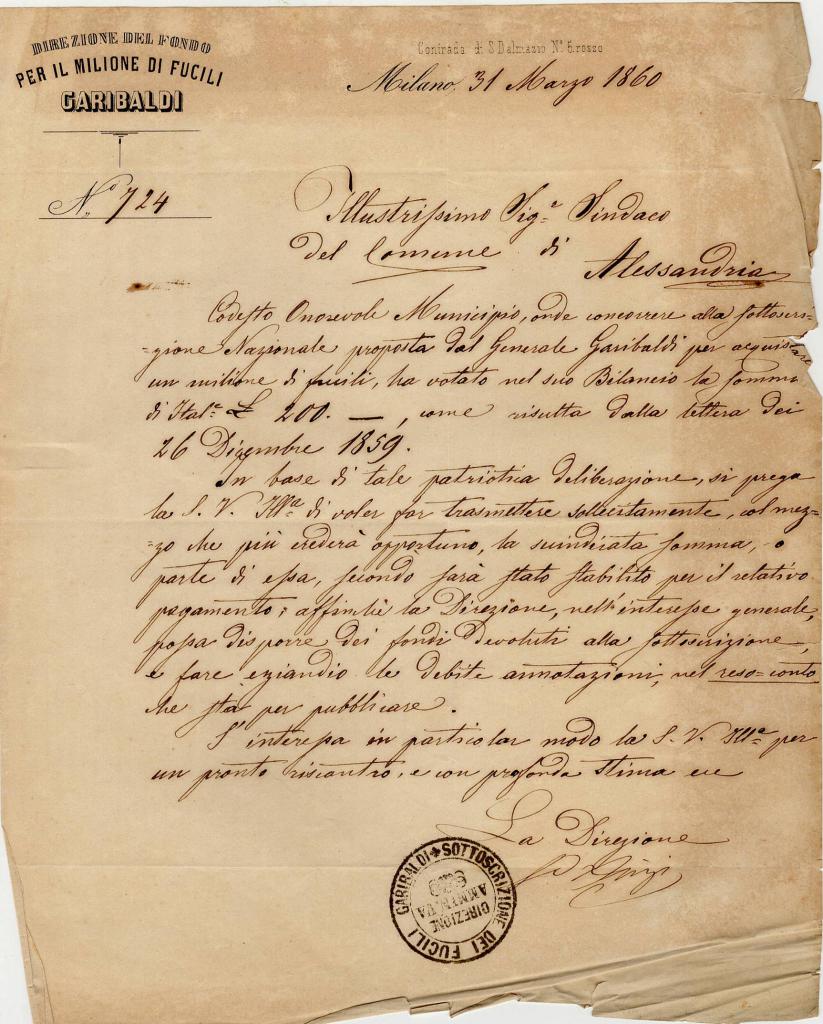 DIREZIONE DEL FONDO
PER IL MILIONE DI FUCILI
GARIBALDI
Contrada di S. Dalmazio N.º 6. rosso
Milano, 31 Marzo 1860
N.º 724
Illustrissimo Sig.r Sindaco
del Comune di
Alessandria
Codesto Onorevole Municipio, onde concorrere alla sottoscri=
=zione Nazionale proposta dal Generale Garibaldi per acquistare
un milione di fucili, ha votato nel suo Bilancio la somma
di Ital.e £ 200. —, come risulta dalla lettera dei
26 Dizembre 1859.
In base di tale patriotica deliberazione, si prega
la S. V. Ill.a di voler far trasmettere sollecitamente, col mez=
=zo che più crederà opportuno, la suindicata somma, o
parte di essa, secondo sarà stato stabilito per il relativo
pagamento; affinchè la Direzione, nell'interesse generale,
possa disporre dei fondi devoluti alla sottoscrizione,
e fare eziandio le debite annotazioni, nel reso=conto
che sta per pubblicare.
S'interessa in particolar modo la S. V. Ill.a per
un pronto riscontro, e con profonda stima
La Direzione
GARIBALDI + SOTTOSCRIZIONE DEI FUCILI
DIREZIONE
AMMIN.VA